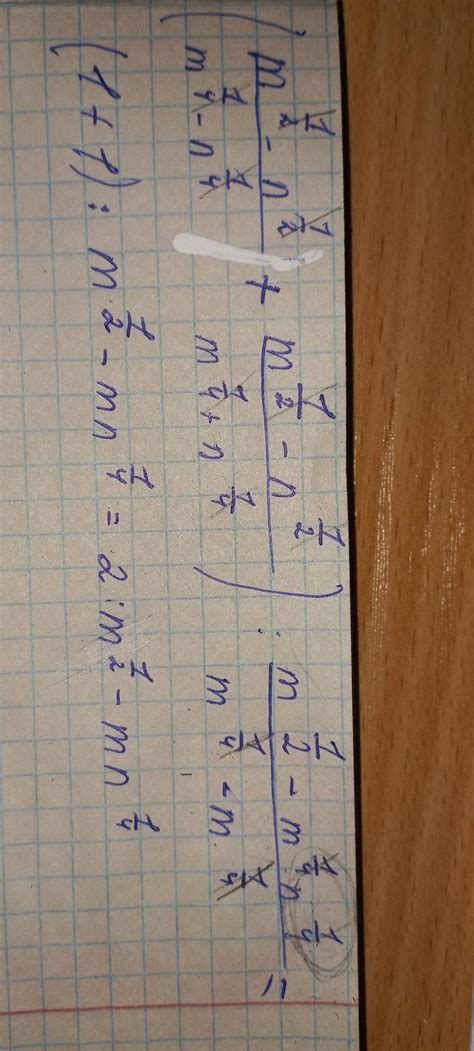 ( (m^{1/2} - n^{1/2}) / (m^{1/4} - n^{1/4}) + (m^{1/2} - n^{1/2}) / (m^{1/4} + n^{1/4}) ) : (m^{1/2} - m^{1/4} n^{1/4}) / (m^{1/4} - m^{1/4}) =
(1 + 1) : m^{1/2} - mn^{1/4} = 2 : m^{1/2} - mn^{1/4}